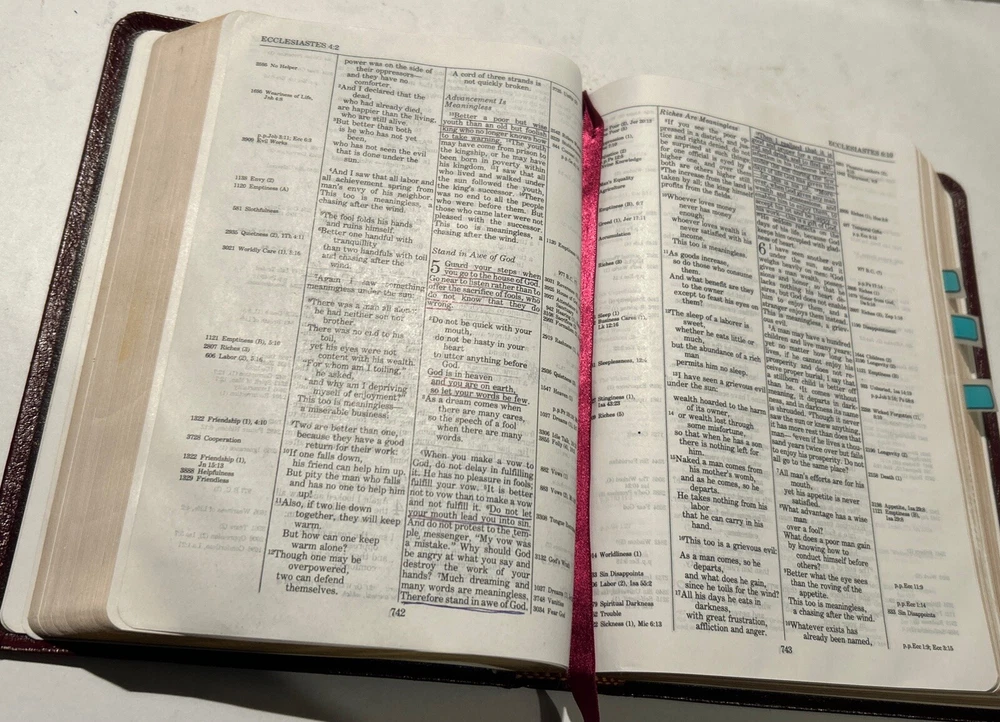 ECCLESIASTES 4:2
power was on the side of
their oppressors—
and they have no
comforter.
²And I declared that the
dead,
who had already died,
are happier than the living,
who are still alive.
³But better than both
is he who has not yet
been,
who has not seen the evil
that is done under the
sun.
⁴And I saw that all labor and
all achievement spring from
man's envy of his neighbor.
This too is meaningless, a
chasing after the wind.
⁵The fool folds his hands
and ruins himself.
⁶Better one handful with
tranquillity
than two handfuls with toil
and chasing after the
wind.
⁷Again I saw something
meaningless under the sun:
⁸There was a man all alone;
he had neither son nor
brother.
There was no end to his
toil,
yet his eyes were not
content with his wealth.
"For whom am I toiling,"
he asked,
"and why am I depriving
myself of enjoyment?"
This too is meaningless—
a miserable business!
⁹Two are better than one,
because they have a good
return for their work:
¹⁰If one falls down,
his friend can help him up.
But pity the man who falls
and has no one to help him
up!
¹¹Also, if two lie down
together, they will keep
warm.
But how can one keep
warm alone?
¹²Though one may be
overpowered,
two can defend
themselves.
A cord of three strands is
not quickly broken.
Advancement Is
Meaningless
¹³Better a poor but wise
youth than an old but foolish
king who no longer knows how
to take warning. ¹⁴The youth
may have come from prison to
the kingship, or he may have
been born in poverty within
his kingdom. ¹⁵I saw that all
who lived and walked under
the sun followed the youth,
the king's successor. ¹⁶There
was no end to all the people
who were before them. But
those who came later were not
pleased with the successor.
This too is meaningless, a
chasing after the wind.
Stand in Awe of God
5 Guard your steps when
you go to the house of God.
Go near to listen rather than to
offer the sacrifice of fools, who
do not know that they do
wrong.
²Do not be quick with your
mouth,
do not be hasty in your
heart
to utter anything before
God.
God is in heaven
and you are on earth,
so let your words be few.
³As a dream comes when
there are many cares,
so the speech of a fool
when there are many
words.
⁴When you make a vow to
God, do not delay in fulfilling
it. He has no pleasure in fools;
fulfill your vow. ⁵It is better
not to vow than to make a vow
and not fulfill it. ⁶Do not let
your mouth lead you into sin.
And do not protest to the tem-
ple messenger, "My vow was
a mistake." Why should God
be angry at what you say and
destroy the work of your
hands? ⁷Much dreaming and
many words are meaningless.
Therefore stand in awe of God.
742
2050 No Helper
1656 Weariness of Life,
Job 4:2
p.p. Job 3:11; Ecc 6:3
2909 Evil Works
1138 Envy (2)
1120 Emptiness (A)
381 Slothfulness
2935 Quietness (2), 1Th 4:11
3021 Worldly Care (1), 5:16
1121 Emptiness (B), 5:10
2807 Riches (3)
606 Labor (2), 5:16
1322 Friendship (1), 4:10
3728 Cooperation
1322 Friendship (1),
Jn 15:13
3888 Helpfulness
1329 Friendless
ECCLESIASTES 6:10
Riches Are Meaningless
⁸If you see the poor op-
pressed in a district, and jus-
tice and rights denied, do not
be surprised at such things;
for one official is eyed by a
higher one, and over them
both are others higher still.
⁹The increase from the land is
taken by all; the king himself
profits from the fields.
¹⁰Whoever loves money
never has money
enough;
whoever loves wealth is
never satisfied with his
income.
This too is meaningless.
¹¹As goods increase,
so do those who consume
them.
And what benefit are they
to the owner
except to feast his eyes on
them?
¹²The sleep of a laborer is
sweet,
whether he eats little or
much,
but the abundance of a rich
man
permits him no sleep.
¹³I have seen a grievous evil
under the sun:
wealth hoarded to the harm
of its owner,
¹⁴or wealth lost through
some misfortune,
so that when he has a son
there is nothing left for
him.
¹⁵Naked a man comes from
his mother's womb,
and as he comes, so he
departs.
He takes nothing from his
labor
that he can carry in his
hand.
¹⁶This too is a grievous evil:
As a man comes, so he
departs,
and what does he gain,
since he toils for the wind?
¹⁷All his days he eats in
darkness,
with great frustration,
affliction and anger.
days of his life, because God
keeps him occupied with gladness
of heart.
6 I have seen another evil
under the sun, and it
weighs heavily on men: ²God
gives a man wealth, possessions
and honor, so that he
lacks nothing his heart desires,
but God does not enable
him to enjoy them, and a
stranger enjoys them instead.
This is meaningless, a grievous
evil.
³A man may have a hundred
children and live many years;
yet no matter how long he
lives, if he cannot enjoy his
prosperity and does not re-
ceive proper burial, I say that
a stillborn child is better off
than he. ⁴It comes without
meaning, it departs in dark-
ness, and in darkness its name
is shrouded. ⁵Though it never
saw the sun or knew anything,
it has more rest than does that
man— ⁶even if he lives a thou-
sand years twice over but fails
to enjoy his prosperity. Do not
all go to the same place?
⁷All man's efforts are for his
mouth,
yet his appetite is never
satisfied.
⁸What advantage has a wise
man
over a fool?
What does a poor man gain
by knowing how to
conduct himself before
others?
⁹Better what the eye sees
than the roving of the
appetite.
This too is meaningless,
a chasing after the wind.
¹⁰Whatever exists has
already been named,
743
p.p. Ecc 11:9
p.p. Ecc 1:14
p.p. Ecc 1:9; Ecc 3:15